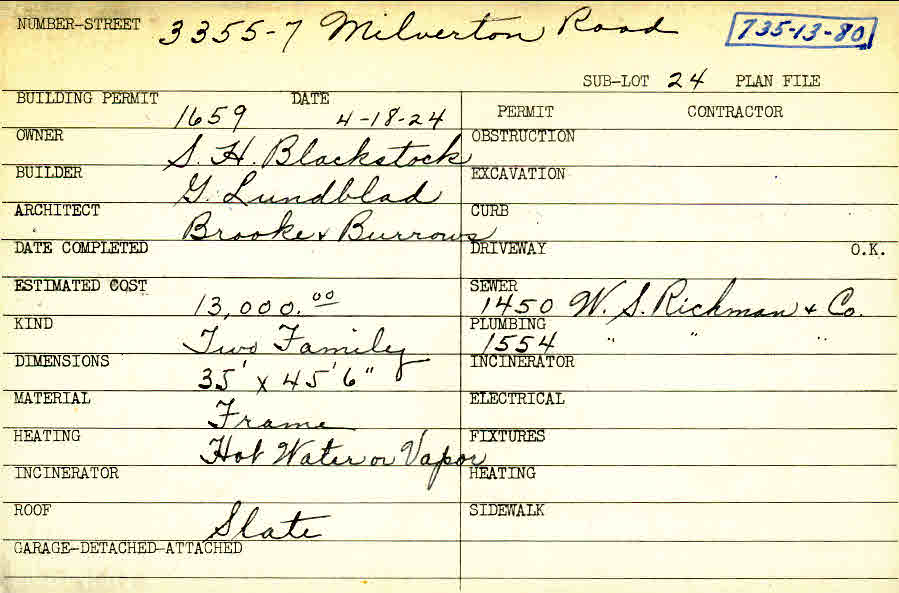 NUMBER-STREET 3355-7 Milverton Road 735-13-80
SUB-LOT 24 PLAN FILE
BUILDING PERMIT 1659 DATE 4-18-24
PERMIT CONTRACTOR
OWNER S. H. Blackstock
OBSTRUCTION
BUILDER G. Lundblad
EXCAVATION
ARCHITECT Brooke & Burrows
CURB
DATE COMPLETED
DRIVEWAY O.K.
ESTIMATED COST 13,000.00
SEWER 1450 W. S. Richman & Co.
KIND Two Family
PLUMBING 1554 " " "
DIMENSIONS 35' x 45' 6"
INCINERATOR
MATERIAL Frame
ELECTRICAL
HEATING Hot Water or Vapor
FIXTURES
INCINERATOR
HEATING
ROOF Slate
SIDEWALK
GARAGE-DETACHED-ATTACHED